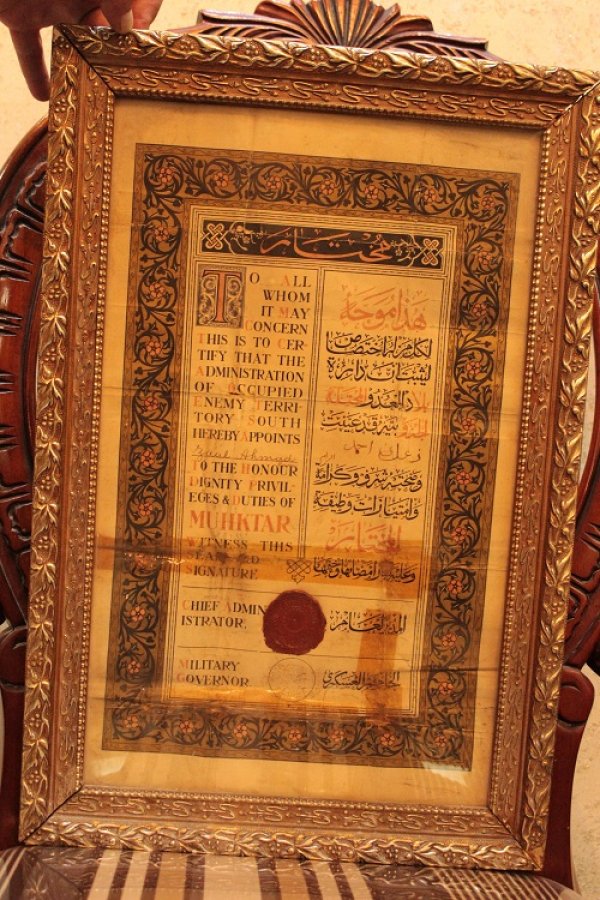 مختار
TO ALL
WHOM
IT MAY
CONCERN
THIS IS TO CER-
TIFY THAT THE
ADMINISTRATION
OF OCCUPIED
ENEMY TERRI-
TORY SOUTH
HEREBY APPOINTS
Ahmad
TO THE HONOUR
DIGNITY PRIVIL-
EGES & DUTIES OF
MUHKTAR
WITNESS THIS
SEAL AND
SIGNATURE
هذا موجه
لكل من له اختصاص
بلاد العدو
الجنوبية قد عينت
احمد
وضحته شرف وكرامة
وامتيازات وظيفة
المختار
CHIEF ADMIN-
ISTRATOR,
المدير العام
MILITARY
GOVERNOR
الحاكم العسكري